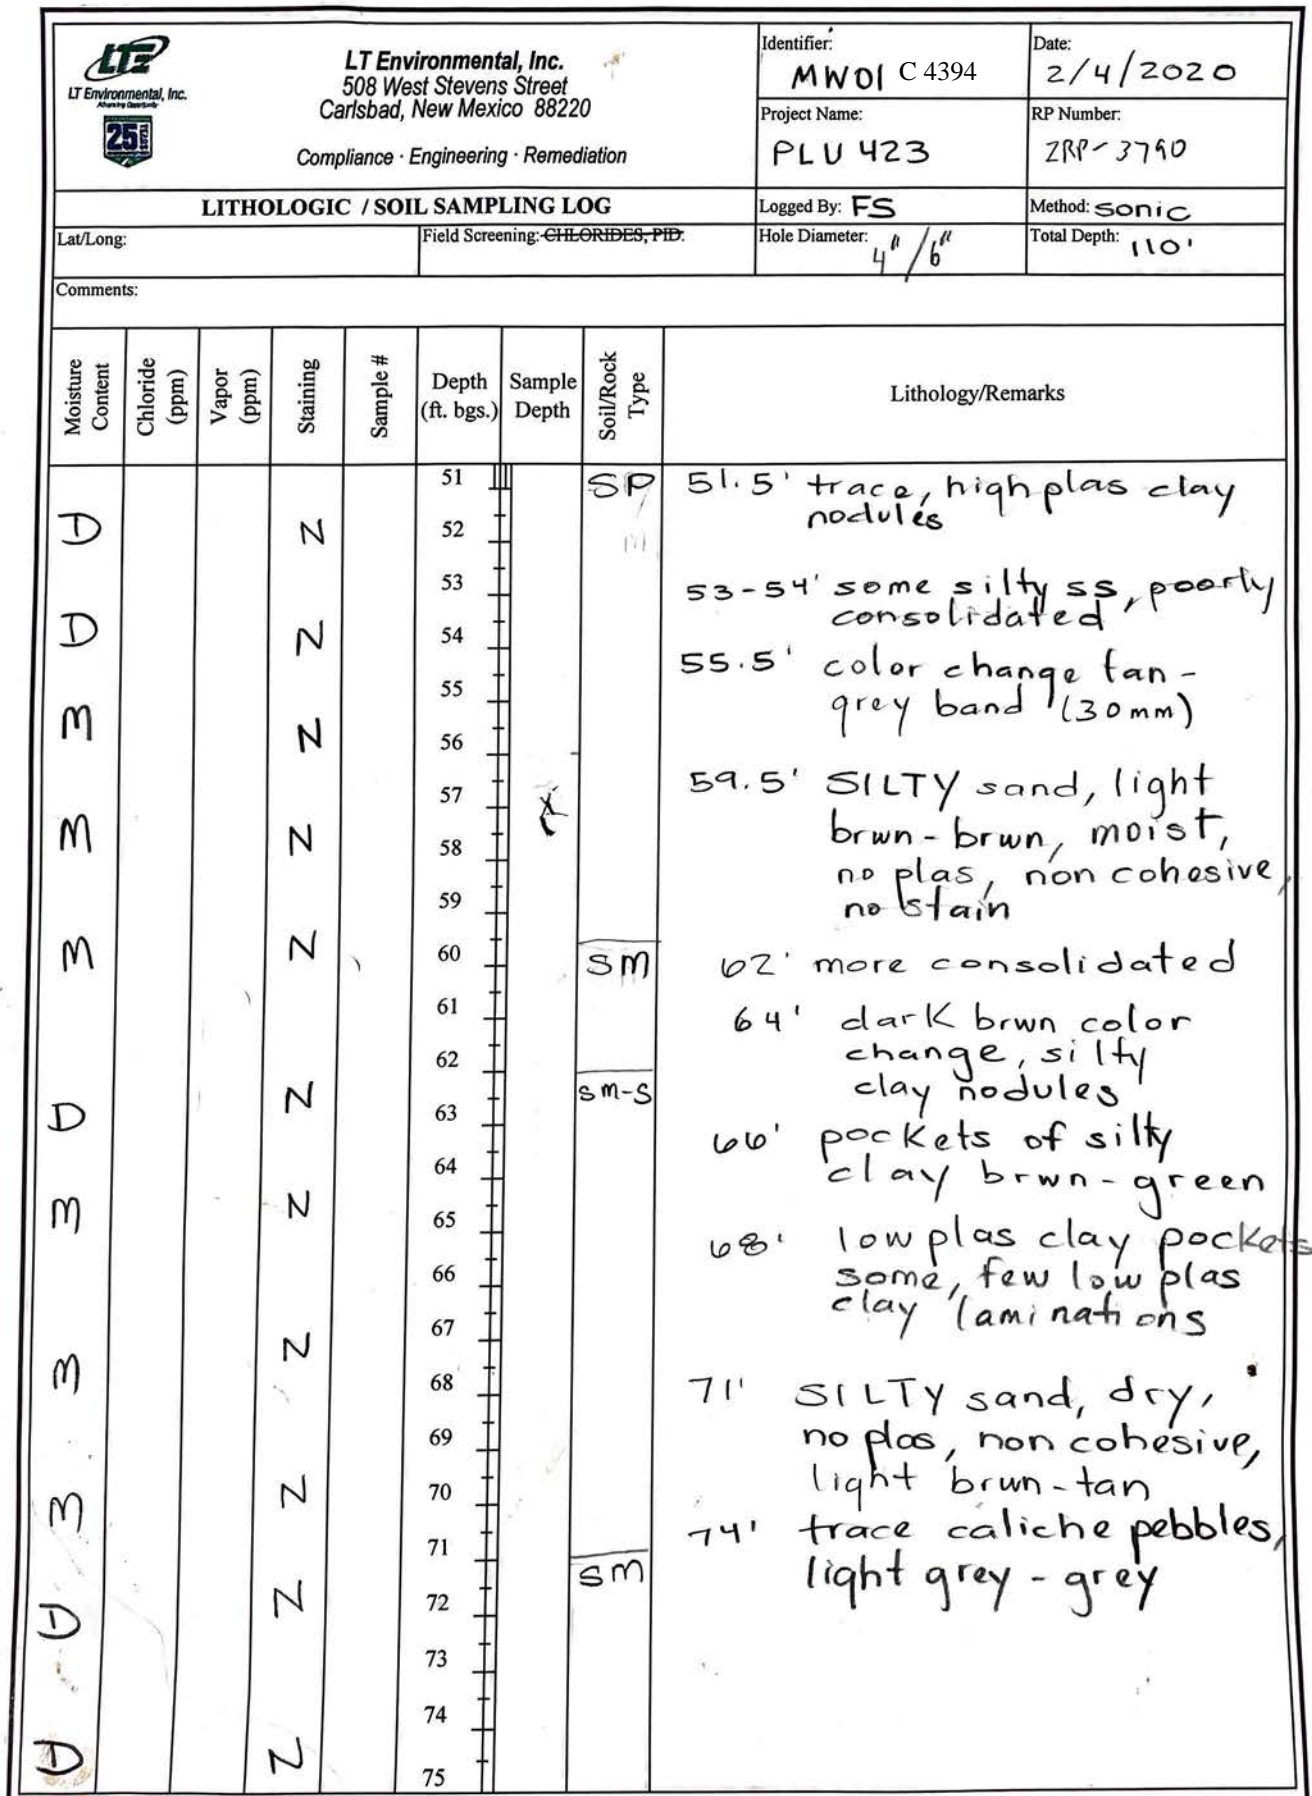 LTE
LT Environmental, Inc.
Advancing Opportunity
25
LT Environmental, Inc.
508 West Stevens Street
Carlsbad, New Mexico 88220
Compliance · Engineering · Remediation
Identifier:
MW01 C 4394
Date:
2/4/2020
Project Name:
PLU 423
RP Number:
2RP-3790
LITHOLOGIC / SOIL SAMPLING LOG
Logged By: FS
Method: sonic
Lat/Long:
Field Screening: CHLORIDES, PID.
Hole Diameter: 4"/6"
Total Depth: 110'
Comments:
Moisture Content
Chloride (ppm)
Vapor (ppm)
Staining
Sample #
Depth (ft. bgs.)
Sample Depth
Soil/Rock Type
Lithology/Remarks
51 SP 51.5' trace, high plas clay
nodules
D N 52
53 53-54' some silty ss, poorly
consolidated
D N 54
55.5' color change tan-
55 grey band (30mm)
M N 56
57 59.5' SILTY sand, light
M N 58 brwn-brwn, moist,
no plas, non cohesive,
59 no stain
M N 60 SM 62' more consolidated
61 64' dark brwn color
change, silty
62 clay nodules
D N 63 SM-S
66' pockets of silty
64 clay brwn-green
M N 65 68' low plas clay pockets
66 some, few low plas
clay laminations
67
M N 68 71' SILTY sand, dry,
69 no plas, non cohesive,
light brwn-tan
M N 70 74' trace caliche pebbles,
71 light grey-grey
D N 72 SM
73
74
D N 75